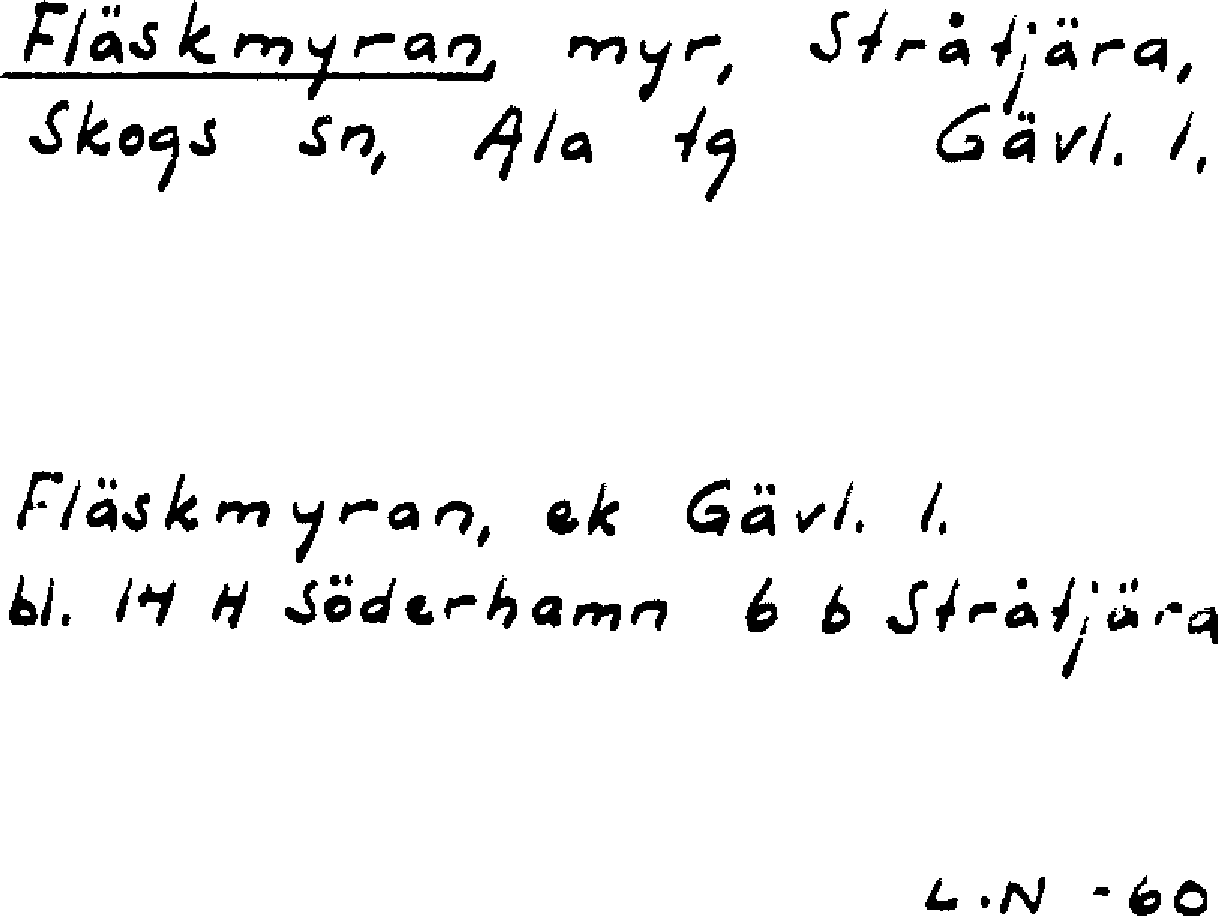 Fläskmyran, myr, Stråtjära,
Skogs sn, Ala tg Gävl. l.
Fläskmyran, ek Gävl. l.
bl. 14 H Söderhamn 6 b Stråtjära
L.N -60